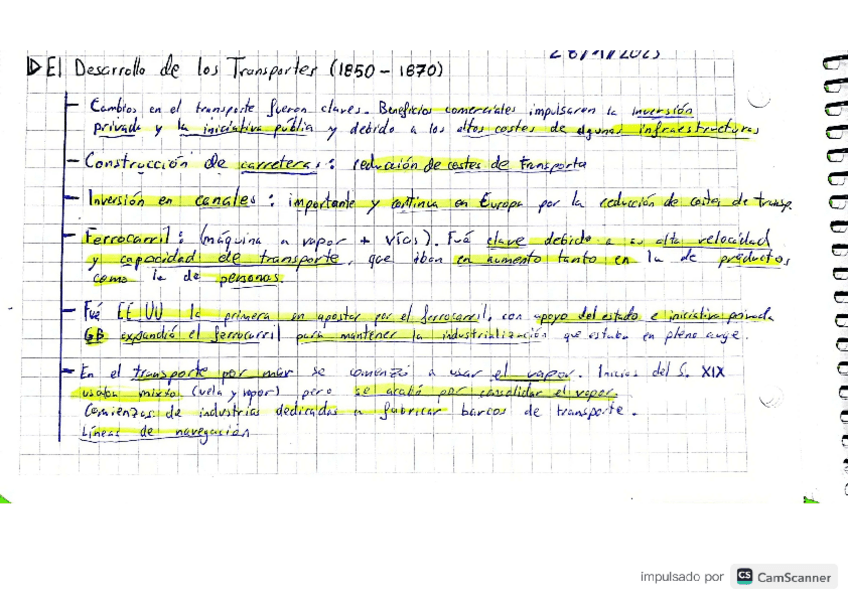 El Desarrollo de los Transportes (1850 - 1870)
- Cambios en el transporte fueron claves. Beneficios comerciales impulsaron la inversión
privada y la iniciativa pública y debido a los altos costes de algunas infraestructuras
- Construcción de carreteras: reducción de costes de transporte
- Inversión en canales: importante y continua en Europa por la reducción de costes de transp.
- Ferrocarril: (máquina a vapor + vías). Fué clave debido a su alta velocidad
y capacidad de transporte, que iban en aumento tanto en la de productos
como la de personas.
- Fué EEUU la primera en apostar por el ferrocarril, con apoyo del estado e iniciativa privada
GB expandió el ferrocarril para mantener la industrialización que estaba en pleno auge.
- En el transporte por mar se comenzó a usar el vapor. Inicios del S. XIX
usaban mixto (vela y vapor) pero se acabó por consolidar el vapor.
Comienzos de industrias dedicadas a fabricar barcos de transporte.
Líneas de navegación
impulsado por CS CamScanner